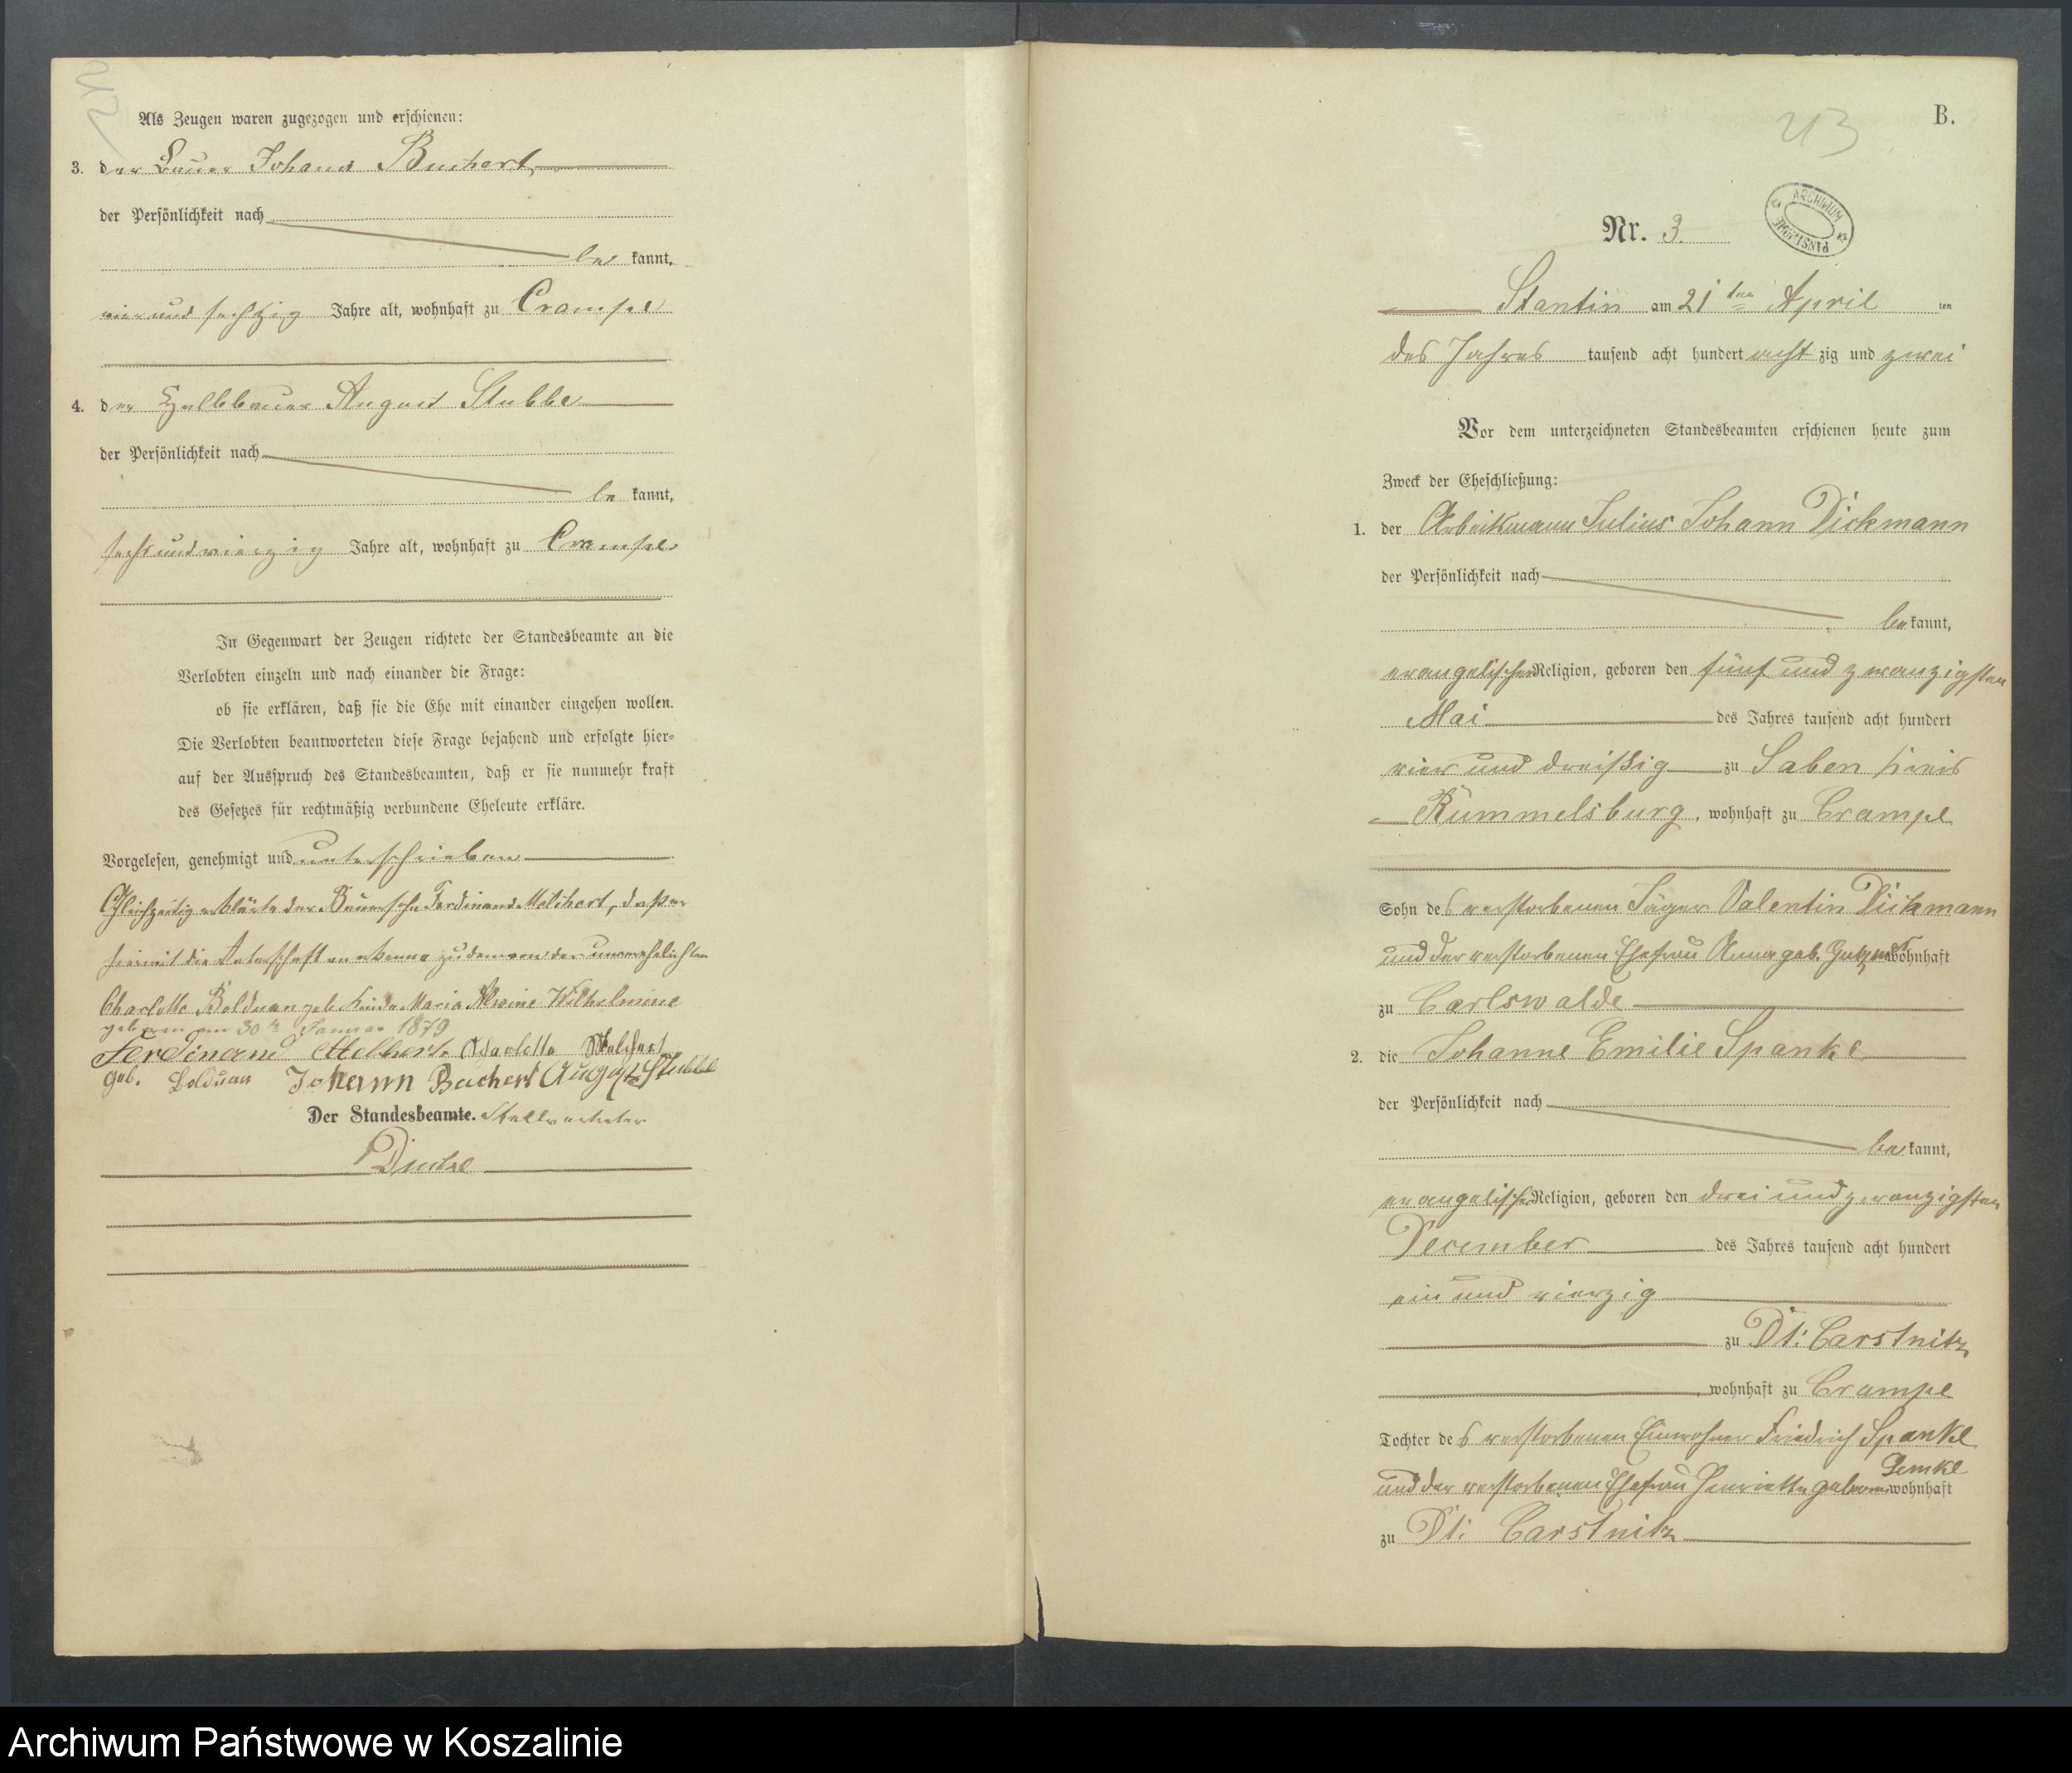 Als Zeugen waren zugezogen und erschienen:
3. der Bauer Johann Buchert
der Persönlichkeit nach
be kannt,
vier und sechszig Jahre alt, wohnhaft zu Crampe
4. der Halbbauer August Stubbe
der Persönlichkeit nach
be kannt,
sechs und vierzig Jahre alt, wohnhaft zu Crampe
In Gegenwart der Zeugen richtete der Standesbeamte an die
Verlobten einzeln und nach einander die Frage:
ob sie erklären, daß sie die Ehe mit einander eingehen wollen.
Die Verlobten beantworteten diese Frage bejahend und erfolgte hier-
auf der Ausspruch des Standesbeamten, daß er sie nunmehr kraft
des Gesetzes für rechtmäßig verbundene Eheleute erkläre.
Vorgelesen, genehmigt und unterschrieben
Gleichzeitig erklärte der Bauersohn Ferdinand Melchert, daß er
hiermit die Vaterschaft anerkenne zu dem von der unverehelichten
Charlotte Bolduan geb. Kinde Maria Alwine Wilhelmine
geboren am 30ten Januar 1879
Ferdinand Melchert Charlotte Melchert
geb. Bolduan Johann Buchert August Stubbe
Der Standesbeamte. Stellvertreter
213
B.
ARCHIWUM PAŃSTWOWE
Nr. 3.
Stantin am 21ten April ten
des Jahres tausend acht hundert acht zig und zwei
Vor dem unterzeichneten Standesbeamten erschienen heute zum
Zweck der Eheschließung:
1. der Arbeitsmann Julius Johann Dickmann
der Persönlichkeit nach
be kannt,
evangelischer Religion, geboren den fünf und zwanzigsten
Mai des Jahres tausend acht hundert
vier und dreißig zu Saben Kreis
Rummelsburg, wohnhaft zu Crampe
Sohn des verstorbenen Jäger Valentin Dickmann
und der verstorbenen Ehefrau Anna geb. wohnhaft
zu Carlswalde
2. die Johanne Emilie Spanke
der Persönlichkeit nach
be kannt,
evangelischer Religion, geboren den drei und zwanzigsten
December des Jahres tausend acht hundert
ein und vierzig
zu Dt: Carstnitz
, wohnhaft zu Crampe
Tochter des verstorbenen Einwohner Friedrich Spanke
und der verstorbenen Ehefrau Henriette geboren Lemke wohnhaft
zu Dt: Carstnitz
Archiwum Państwowe w Koszalinie